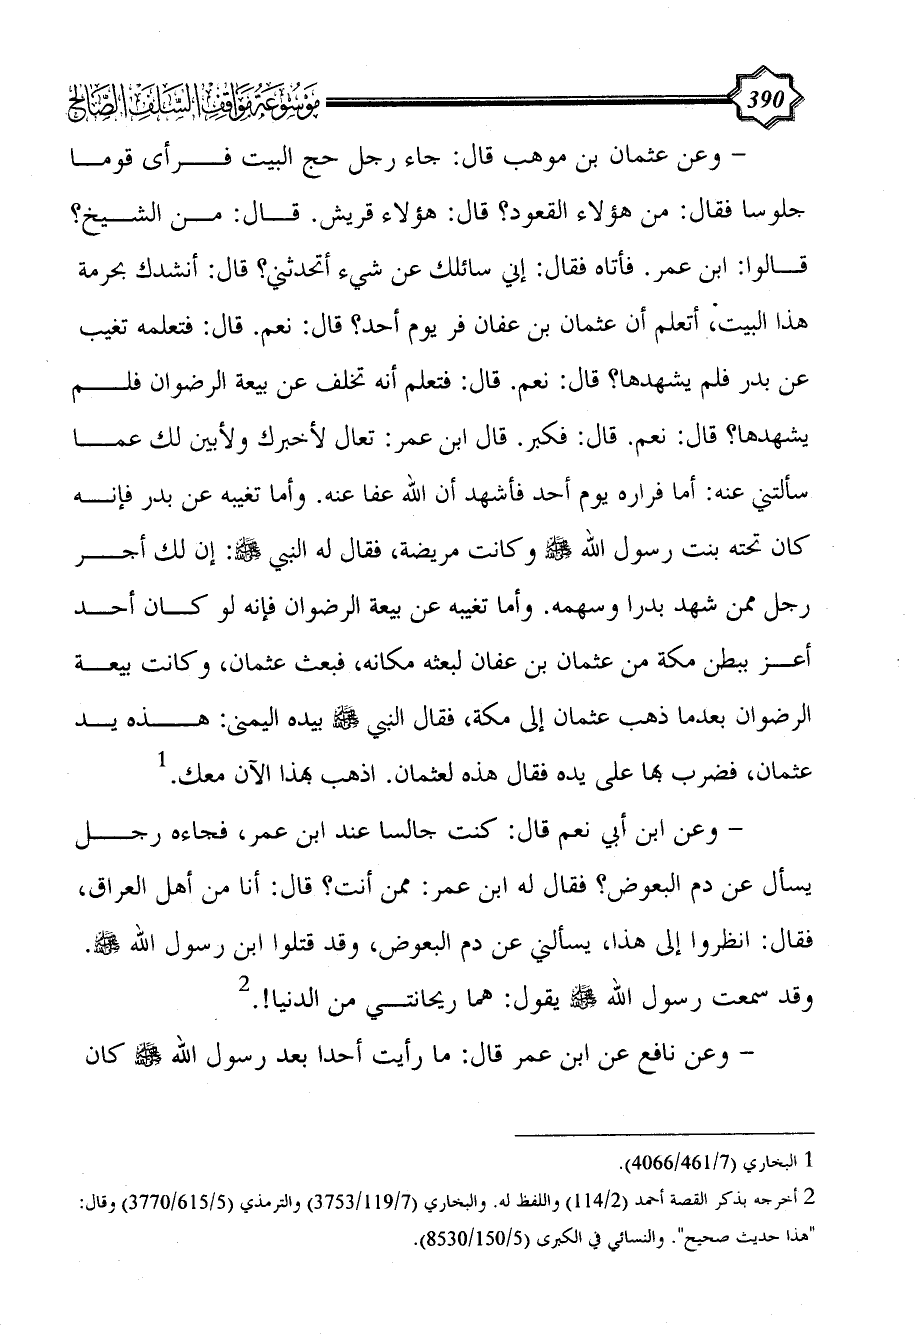 390
موسوعة مواقف السلف الصالح
– وعن عثمان بن موهب قال: جاء رجل حج البيت فرأى قوما
جلوسا فقال: من هؤلاء القعود؟ قال: هؤلاء قريش. قال: من الشيخ؟
قالوا: ابن عمر. فأتاه فقال: إني سائلك عن شيء أتحدثني؟ قال: أنشدك بحرمة
هذا البيت، أتعلم أن عثمان بن عفان فر يوم أحد؟ قال: نعم. قال: فتعلمه تغيب
عن بدر فلم يشهدها؟ قال: نعم. قال: فتعلم أنه تخلف عن بيعة الرضوان فلم
يشهدها؟ قال: نعم. قال: فكبر. قال ابن عمر: تعال لأخبرك ولأبين لك عما
سألتني عنه: أما فراره يوم أحد فأشهد أن الله عفا عنه. وأما تغيبه عن بدر فإنه
كان تحته بنت رسول الله ﷺ وكانت مريضة، فقال له النبي ﷺ: إن لك أجر
رجل ممن شهد بدرا وسهمه. وأما تغيبه عن بيعة الرضوان فإنه لو كان أحد
أعز ببطن مكة من عثمان بن عفان لبعثه مكانه، فبعث عثمان، وكانت بيعة
الرضوان بعدما ذهب عثمان إلى مكة، فقال النبي ﷺ بيده اليمنى: هذه يد
عثمان، فضرب بها على يده فقال هذه لعثمان. اذهب بهذا الآن معك.1
– وعن ابن أبي نعم قال: كنت جالسا عند ابن عمر، فجاءه رجل
يسأل عن دم البعوض؟ فقال له ابن عمر: ممن أنت؟ قال: أنا من أهل العراق،
فقال: انظروا إلى هذا، يسألني عن دم البعوض، وقد قتلوا ابن رسول الله ﷺ.
وقد سمعت رسول الله ﷺ يقول: هما ريحانتي من الدنيا!.2
– وعن نافع عن ابن عمر قال: ما رأيت أحدا بعد رسول الله ﷺ كان
1 البخاري (4066/461/7).
2 أخرجه بذكر القصة أحمد (114/2) واللفظ له. والبخاري (3753/119/7) والترمذي (3770/615/5) وقال:
"هذا حديث صحيح". والنسائي في الكبرى (8530/150/5).